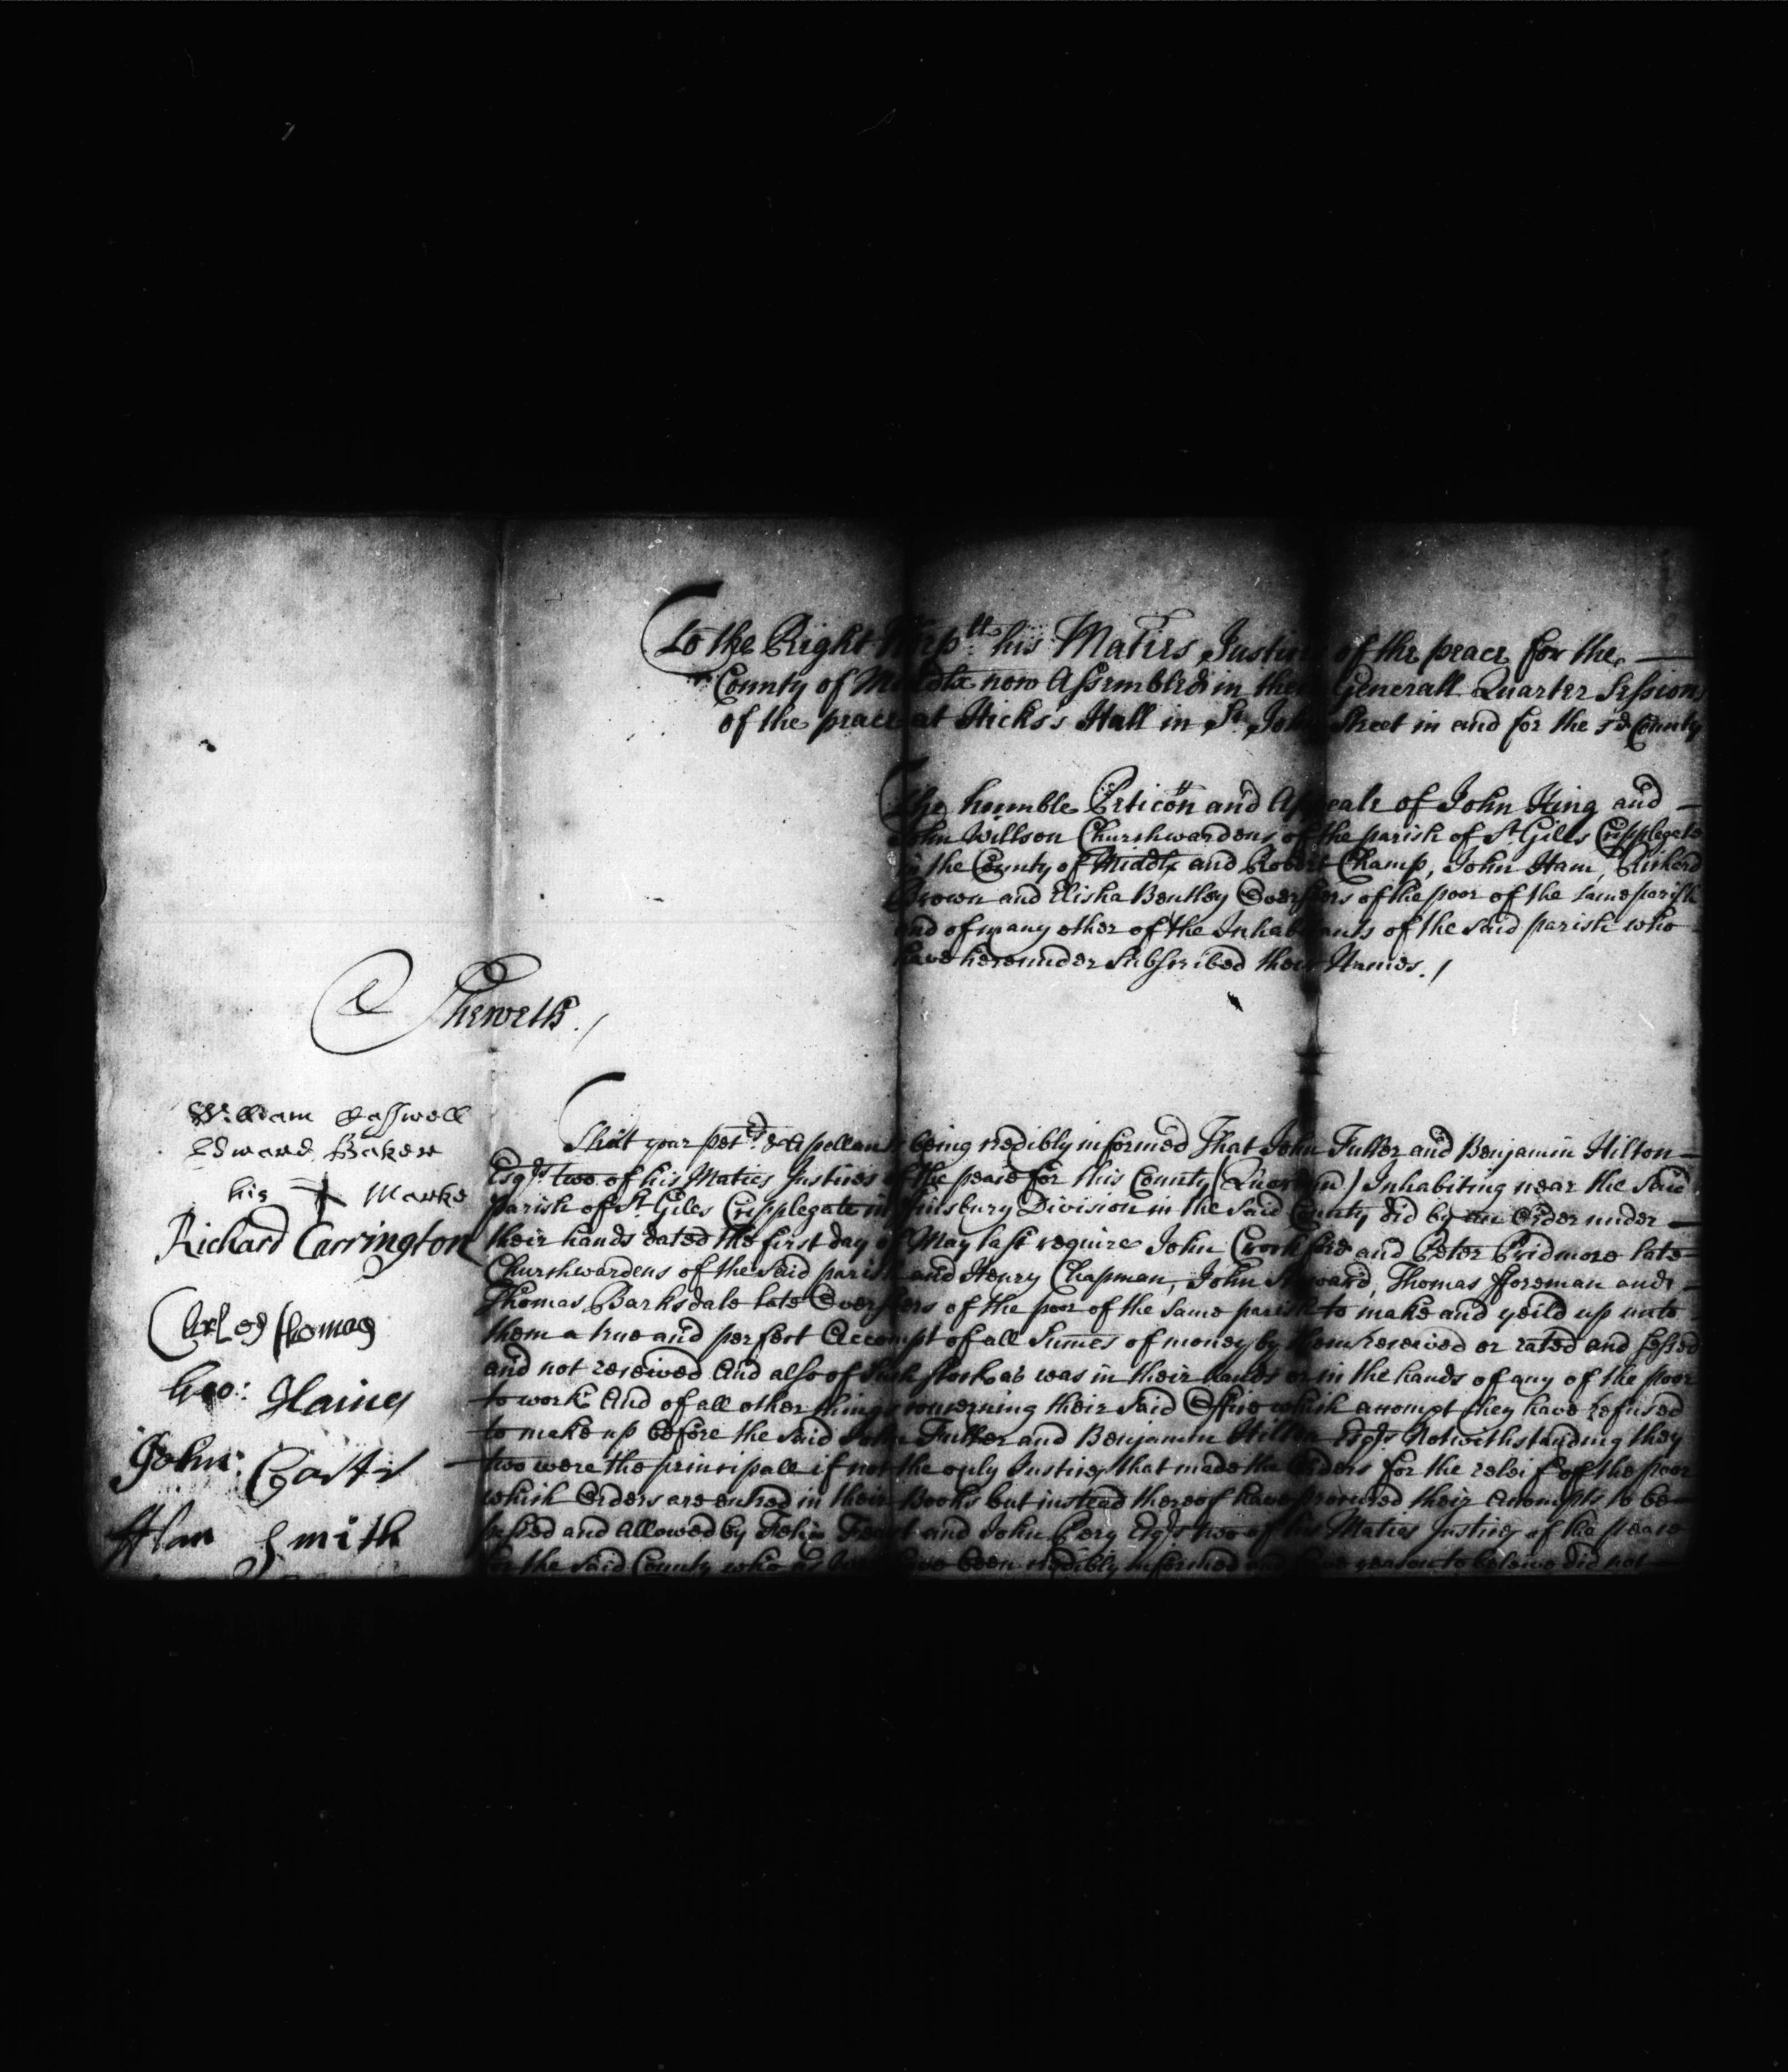 To the Right Worp:ll his Maties Justices of the peace for the
County of Middlx now Assembled in their Generall Quarter Sessions
of the peace at Hicks's Hall in St. John Street in and for the sd County
The humble Peticon and Appeale of John King and
John Willson Churchwardens of the parish of St Giles Cripplegate
in the County of Middlx and Robert Champ, John Ham, Richard
Brown and Elisha Bentley Overseers of the poor of the same parish
and of many other of the Inhabitants of the said parish who
have hereunder Subscribed their Names. /
Sheweth. /
That your petrs & Apellants being credibly informed That John Fuller and Benjamin Hilton
Esqrs two of his Maties Justices of the peace for this County (Quorum) Inhabiting near the said
parish of St Giles Cripplegate in Finsbury Division in the said County did by an Order under
their hands dated the first day of May last require John and Peter Pridmore late
Churchwardens of the said parish and Henry Chapman, John Thomas fforeman and
Thomas Barksdale late Overseers of the poor of the same parish to make and yeild up unto
them a true and perfect Accompt of all Summes of money by them received or rated and sessed
and not received And also of such stock as was in their hands or in the hands of any of the poor
to work And of all other things concerning their said Office which accompt they have refused
to make up before the said John Fuller and Benjamin Hilton Esqrs Notwithstanding they
two were the principall if not the only Justices that made the Orders for the releif of the poor
which Orders are entred in their Books but instead thereof have procured their Accompts to be
passed and Allowed by Felix Feast and John Pery Esqrs two of his Maties Justices of the peace
for the said County who as have been credibly informed and have reason to beleive did not
William Casswell
Edward Baker
his Marke
Richard Carrington
Charles Thomas
Geo: Haines
John: Carter
Allan Smith